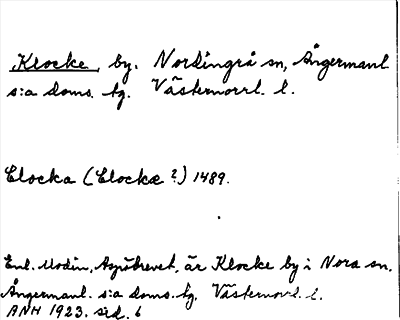 Klocke, by. Nordingrå sn, Ångermanl.
s:a doms. tg. Västernorrl. l.
Clocka (Clockæ?) 1489.
Enl. Modin, Aspöbrevet, är Klocke by i Nora sn.
Ångermanl. s:a doms. tg. Västernorrl. l.
ANH 1923. sid. 6